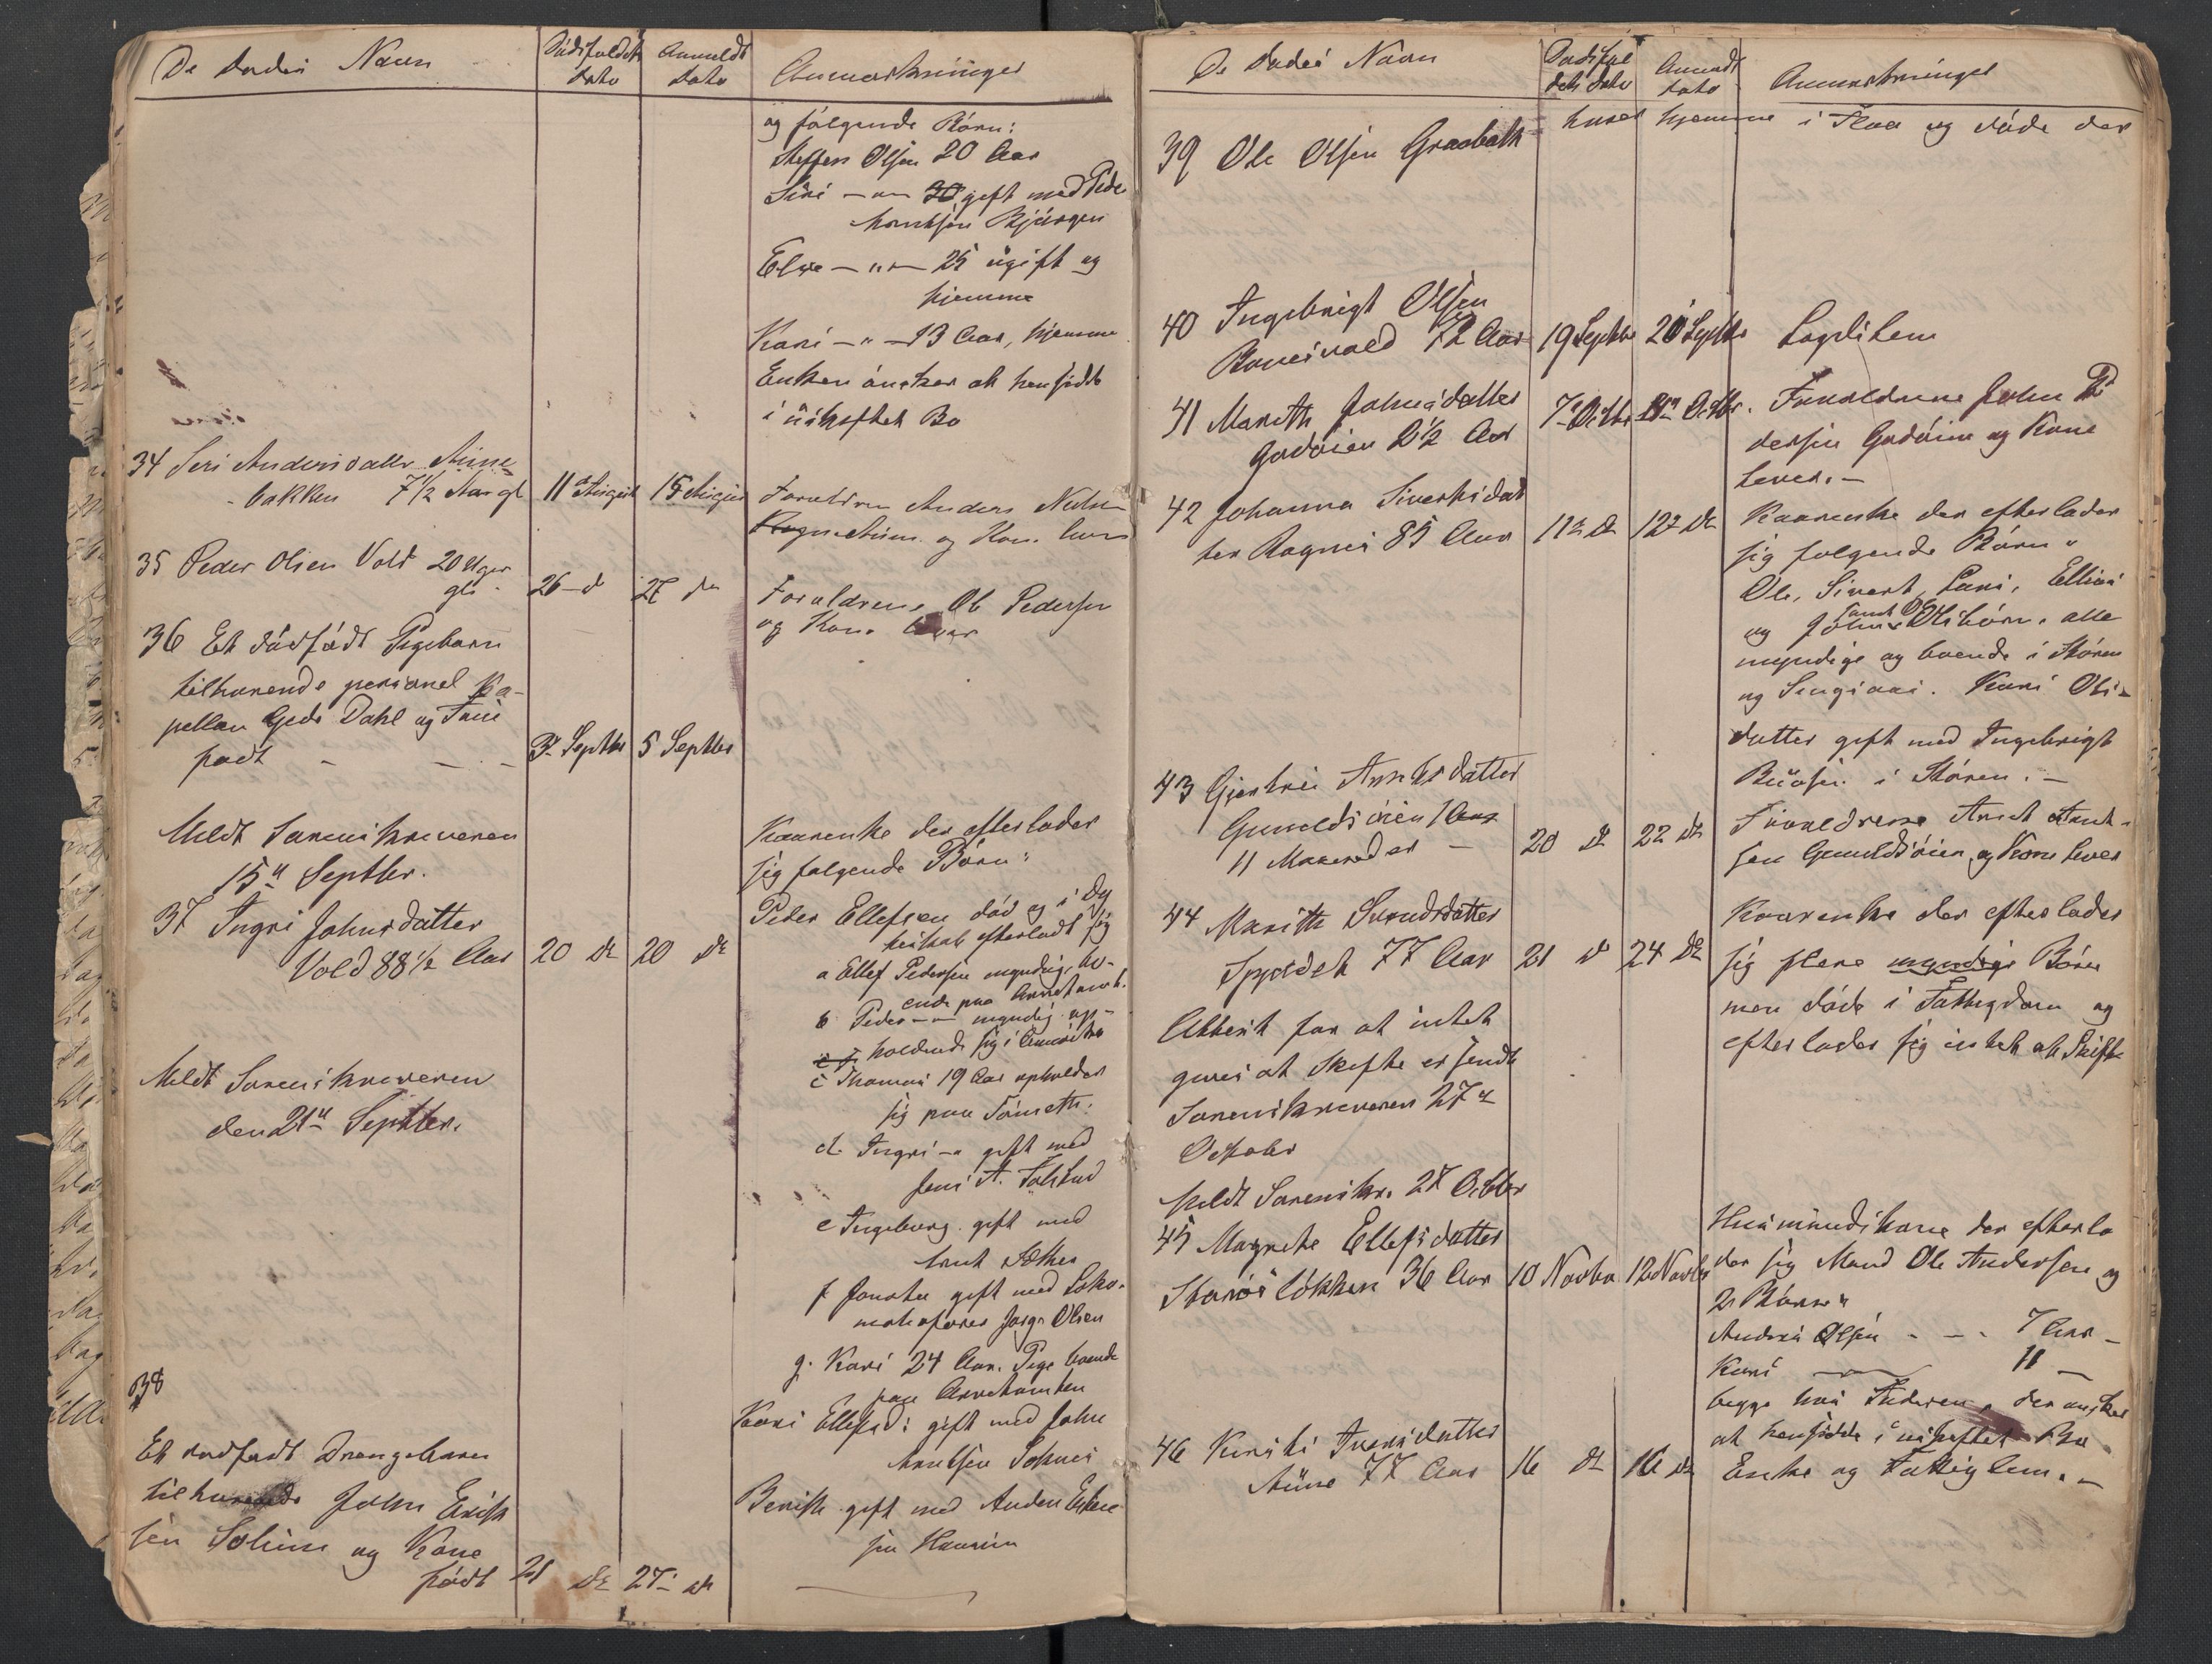 De dødes Navn
Dødsfaldets
Dato
Anmeldt
Dato
Anmærkninger
og følgende Børn:
Steffen Olsen 20 Aar
Siri — " — 30 gift med Peder
Bjørgen
Elen — " — 25 ugift og
hjemme
Kari — " — 13 Aar, hjemme
Enken ønsker at hensidde
i uskiftet Bo
34 Seri Andersdatter Aune
bakken 7 1/2 Aar gl
11 August
15 August
Forældrene Anders
Aune og Kone lever
35 Peder Olsen Vold 20 Uger
gl.
26 - d
27 do
Forældrene Ole Pedersen
og Kone lever
36 Et dødfødt Pigebarn
tilhørende personel Ka-
pellan Gede Dahl og Frue
født
3 Septbr
5 Septbr
Meldt Sorenskriveren
15de Septbr.
37 Ingri Johnsdatter
Vold 88 1/2 Aar
20 do
20 do
Kaarenke der efterlader
sig følgende Børn:
Peder Ellefsen død og i Æg
teskab efterladt sig
a Ellef Pedersen myndig, bo-
ende paa
b Peder — " — myndig op-
holdende sig i Amerika
c Thomas 19 Aar opholder
sig paa
d. Ingri — " gift med
Jens A. Folstad
e Ingeborg gift med
Arnt Sæther
f Jonetta gift med Loko-
motivfører Jørg. Olsen
g. Kari 24 Aar. Pige boende
paa
Kari Ellefsd: gift med John
Arntsen Soknes
Berith gift med Anders Estens
sen
Meldt Sorenskriveren
den 21de Septbr.
38
Et dødfødt Drengebarn
tilhørende John Erik
sen Solum og Kone
født
21 do
27 do
De dødes Navn
Dødsfal
dets Dato
Anmeldt
Dato
Anmærkninger
39 Ole Olsen Graabak
havde hjemme i Flaa og døde der
40 Ingebrigt Olsen
72 Aar
19 Septbr
20 Septbr
Lægdslem
41 Marith Johnsdatter
Godøien 2 1/2 Aar
7 Octbr
Octbr.
Forældrene John Pe
dersen Godøien og Kone
lever. —
42 Johanna Sivertsdat
ter Rognes 85 Aar
11 do
12 do
Kaarenke der efterlader
sig følgende Børn:
Ole, Sivert, Kari,
og John Olsbørn, alle
myndige og boende i Støren
og Singsaas. Kari Ols-
datter gift med Ingebrigt
i Støren. —
43 Gjertru Arntsdatter
Gunnldsøien 1 Aar
11 Maaneder —
20 do
22 do
Forældrene Arnt Arnt-
sen Gunnldsøien og Kone lever
44 Marith Svendsdatter
Spjeldet 77 Aar
21 d
24 do
Kaarenke der efterlader
sig flere myndige Børn
men døde i Fattigdom og
efterlader sig intet at Skifte
Attest for at intet
gives at Skifte er sendt
Sorenskriveren 27de
October
Meldt Sorenskr. 27 Octbr
45 Magnete Ellefsdatter
Størensløkken 36 Aar
10 Novbr
12 Novbr
Husmandskone der efterla
der sig Mand Ole Andersen og
2 Børn:
Anders Olsen - - - 7 Aar —
Kari — " — 11 —
begge hos Faderen, der ønsker
at hensidde i uskiftet Bo
46 Kirsti Iversdatter
Aune 77 Aar
16 do
16 do
Enke og Fattiglem. —